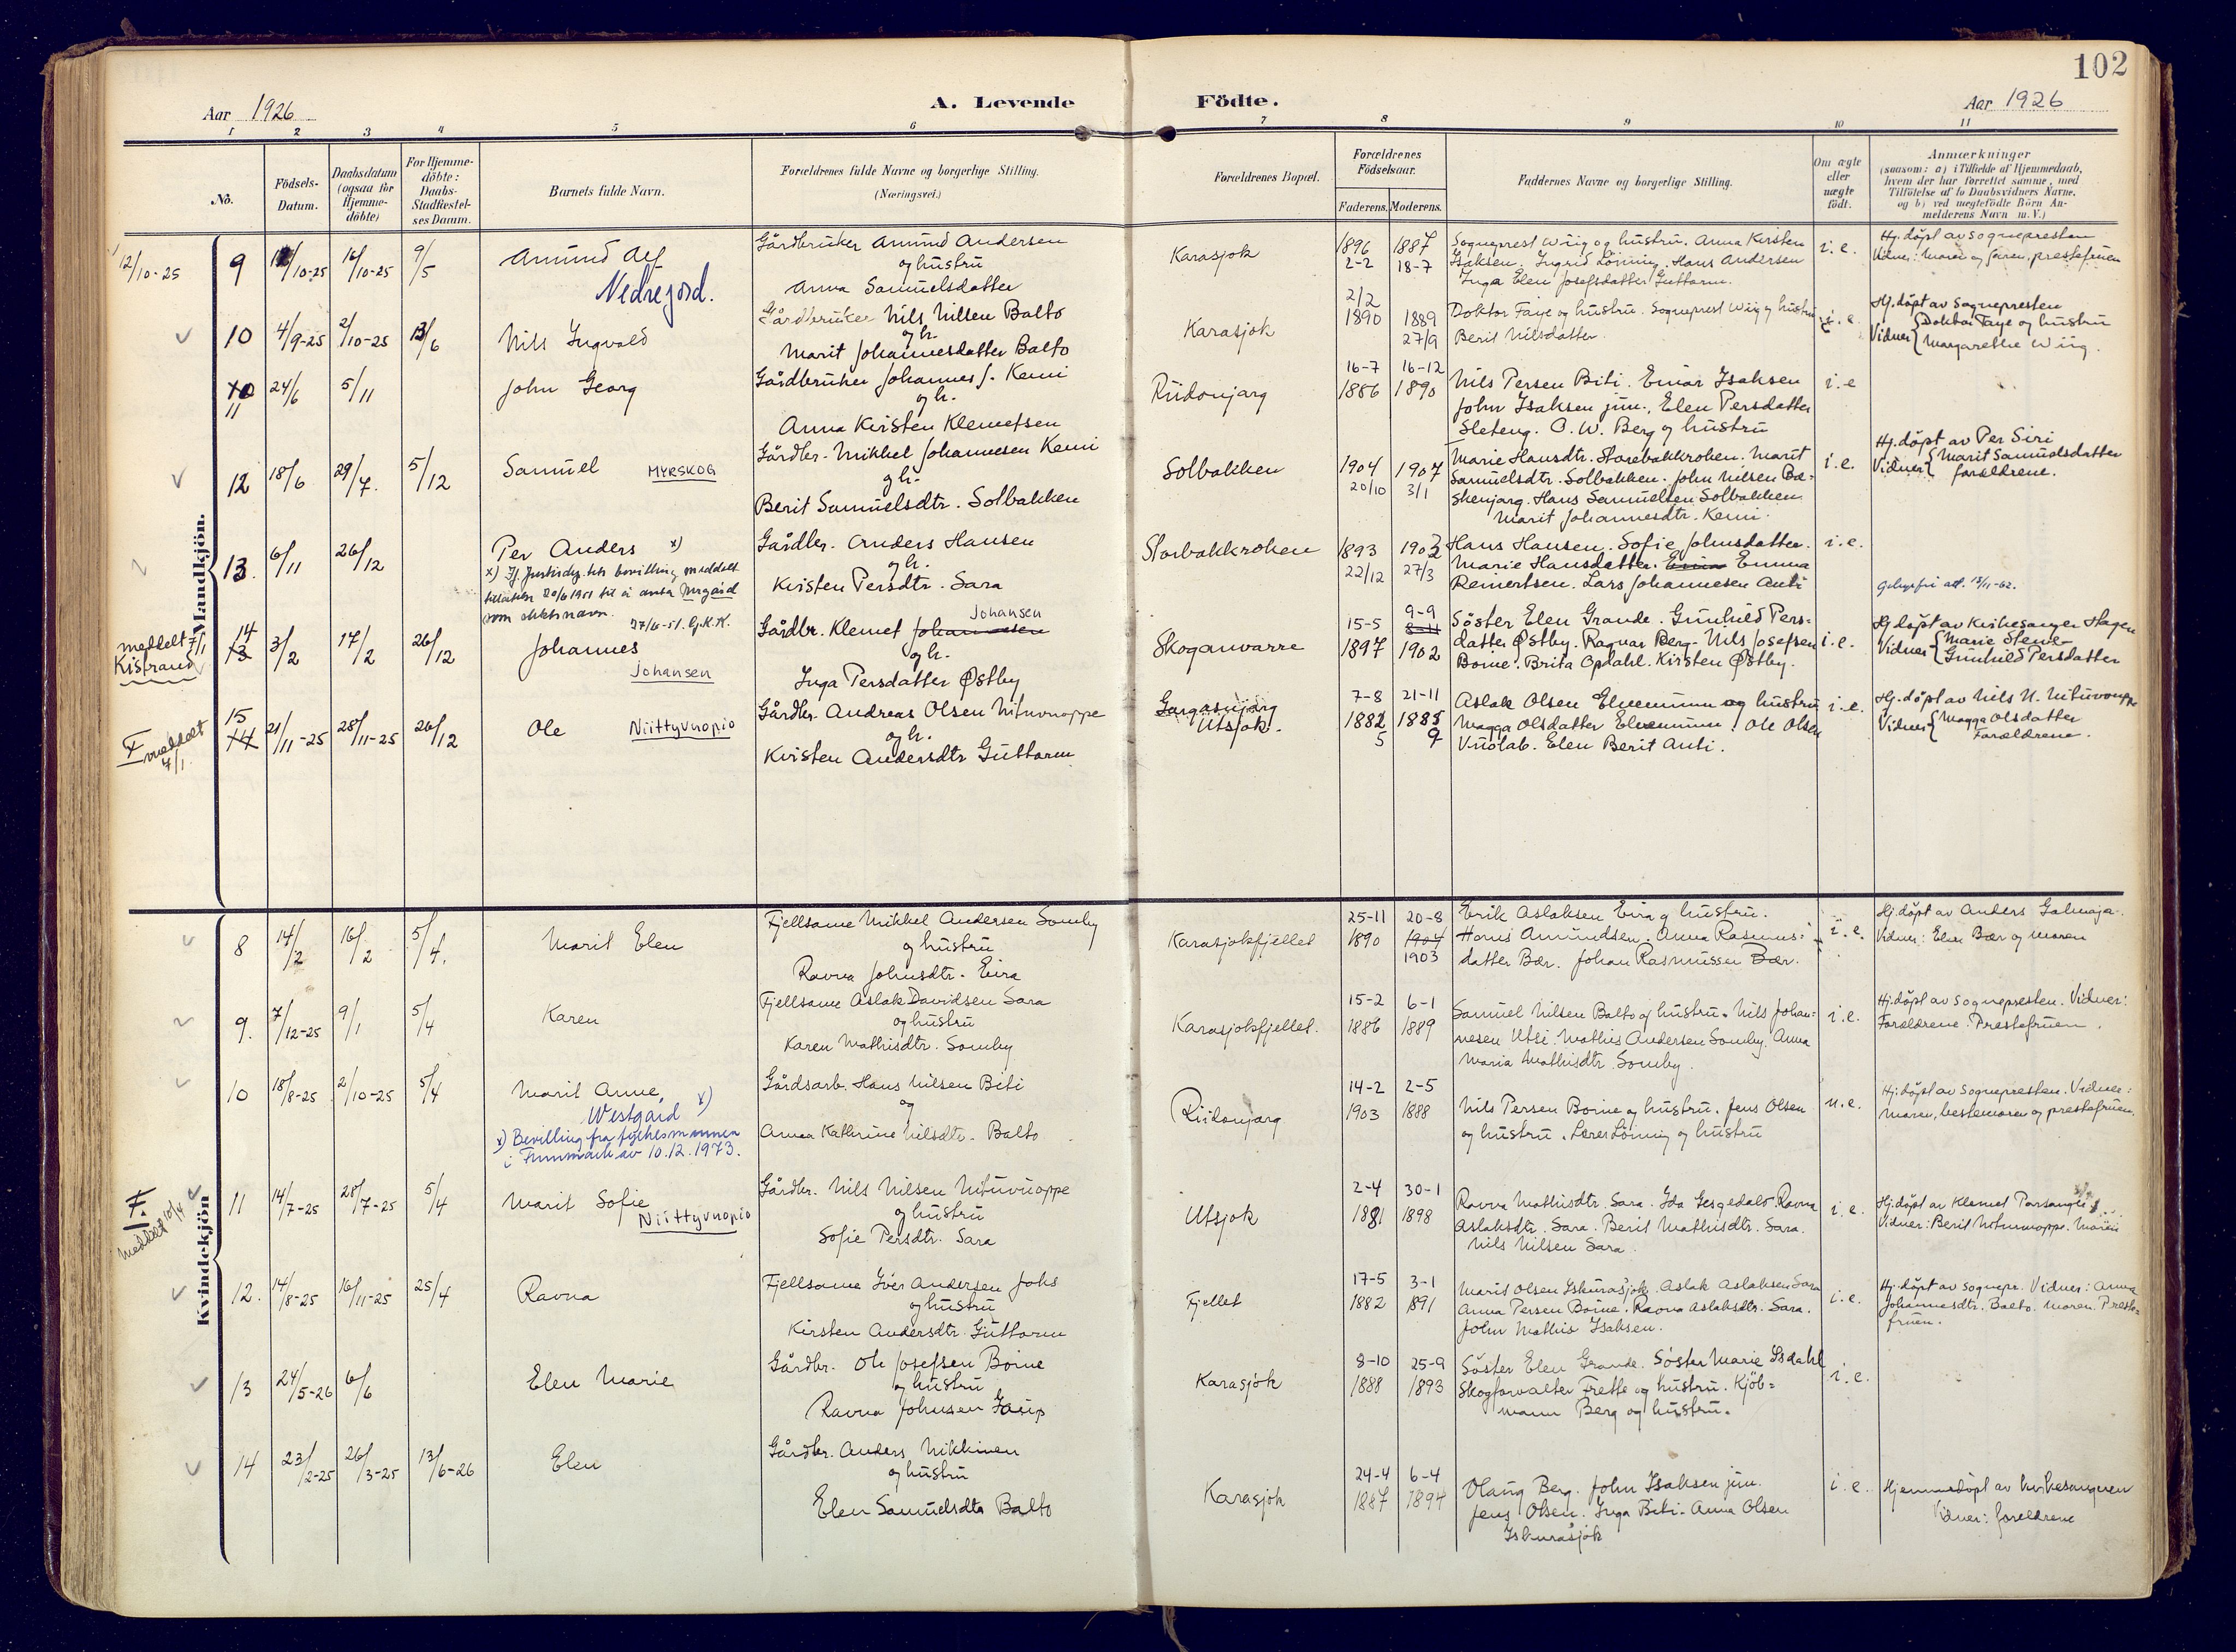 102
Aar 1926
A. Levende
Födte.
Aar 1926
1 2 3 4 5 6 7 8 9 10 11
No.
Födsels-
Datum.
Daabsdatum
(ogsaa for
Hjemme-
döbte)
For Hjemme-
döbte:
Daabs-
Stadfæstel-
ses Datum.
Barnets fulde Navn.
Forældrenes fulde Navne og borgerlige Stilling.
(Næringsvei.)
Forældrenes Bopæl.
Forældrenes
Födselsaar.
Faderens. Moderens.
Faddernes Navne og borgerlige Stilling.
Om ægte
eller
uægte
födt.
Anmærkninger
(saasom: a) i Tilfælde af Hjemmedaab,
hvem der har forrettet samme, med
Tilföielse af to Daabsvidners Navne,
og b) ved uægtefödte Börn An-
melderens Navn m. V.)
Mandkjön.
12/10-25
9 12/10-25 16/10-25 9/5
Amund Alf
Nedrejord.
Gårdbruker Amund Andersen
og hustru
Anna Samuelsdatter
Karasjok
1896 1887
2-2 18-7
Sogneprest Wiig og hustru. Anna Kirsten
Isaksen. Ingrid Lönning. Hans Andersen
Inga Elen Josefsdatter Guttorm.
i.e.
Hj. döpt av sognepresten
Vidner: Moren og faren, prestefruen
10 4/9-25 2/10-25 13/6
Nils Ingvald
Gårdbruker Nils Nilsen Balto
og h.
Marit Johannesdatter Balto
Karasjok
2/2
1890 1889
27/9
Doktor Faye og hustru. Sogneprest Wiig og hustru
Berit Nilsdatter.
i.e.
Hj. döpt av sognepresten
Vidner { Doktor Faye og hustru
Margarethe Wiig.
10
11 24/6 5/11
John Georg
Gårdbruker Johannes J. Kemi
og h.
Anna Kirsten Klemetsen
Riidonjarg
16-7 16-12
1886 1890
Nils Persen Biti. Einar Isaksen
John Isaksen jun., Elen Persdatter
Sleteng. O. W. Berg og hustru
i.e
12 18/6 29/7. 5/12
Samuel MYRSKOG
Gårdbr. Mikkel Johannesen Kemi
og h.
Berit Samuelsdtr. Solbakken
Solbakken
1904 1907
20/10 3/1
Marie Hansdtr. Storebakkroken. Marit
Samuelsdtr. Solbakken. John Nilsen Bæ-
skenjarg. Hans Samuelsen Solbakken
Marit Johannesdtr. Kemi.
i.e.
Hj. döpt av Per Siri
Vidner { Marit Samuelsdatter
forældrene.
13. 6/11 26/12
Per Anders x)
x) If. Justisdep.tets bevilling meddelt
tillatelse 20/6 1951 til å anta Nergård
som slektsnavn. 27/6-51. G.K.K.
Gårdbr. Anders Hansen
og h.
Kirsten Persdtr. Sara
Storbakkroken
1893 1903
22/12 27/3
Hans Hansen. Sofie Johnsdatter.
Marie Hansdatter. Emma
Reinertsen. Lars Johannesen Anti
i.e.
meddelt 7/1
Kistrand
14
13 3/2 17/2 26/12
Johannes
Johansen
Johansen
Gårdbr. Klemet Johannesen
og h.
Inga Persdatter Østby
Skoganvarre
15-5 9-9
8-11
1897 1902
Söster Elen Grande. Gunhild Pers-
datter Østby. Ragnar Berg. Nils Josefsen
Boine. Brita Opdahl. Kirsten Østby.
i.e.
Hj. döpt av Kirkesanger Hagen
Vidner { Marie Stene-
Gunhild Persdatter
F. meddelt
7/1
15
14 21/11-25 28/11-25 26/12
Ole Niittyvuopio
Gårdbr. Andreas Olsen Nituvuoppe
og h.
Kirsten Andersdtr Guttorm
Gargasnjarg
Utsjok.
7-8 21-11
1882 1885
5 9
Aslak Olsen Elvemunn og hustru
Magga Olsdatter Elvemunn. Ole Olsen
Vuolab. Elen Berit Anti.
i.e.
Hj. döpt av Nils N. Nituvuoppe
Vidner { Magga Olsdatter
Forældrene.
Kvindekjön
8 14/2 16/2 5/4.
Marit Elen
Fjellsame Mikkel Andersen Somby
og hustru
Ravna Johnsdtr. Eira
Karasjokfjellet
25-11 20-8
1890 1904
1903
Erik Aslaksen Eira og hustru.
Hans Amundsen. Anna Rasmus-
datter Bær. Johan Rasmussen Bær.
i.e.
Hj. döpt av Anders Galmaja.
Vidner: Elen Bær og moren
9. 7/12-25 9/1 5/4
Karen
Fjellsame Aslak Davidsen Sara
og hustru
Karen Mathisdtr. Somby
Karasjokfjellet.
15-2 6-1
1886 1889
Samuel Nilsen Balto og hustru. Nils Johan-
nesen Utsi. Mathis Andersen Somby. Anna
Maria Mathisdtr. Somby.
i.e.
Hj. döpt av sognepresten. Vidner:
Forældrene. Prestefruen.
10 18/8-25 2/10-25 5/4
Marit Anne,
Westgård x)
x) Bevilling fra fylkesmannen
i Finnmark av 10.12.1973.
Gårdsarb. Hans Nilsen Biti
og
Anna Kathrine Nilsdtr. Balto
Riidonjarg
14-2 2-5
1903 1888
Nils Persen Boine og hustru. Jens Olsen
og hustru. Lærer Lönning og hustru
u.e.
Hj. döpt av sognepresten. Vidner:
Moren, bestemoren og prestefruen.
F.
meddelt 10/4
11 14/7-25 28/7-25 5/4
Marit Sofie
Niittyvuopio
Gårdbr. Nils Nilsen Nituvuoppe
og hustru
Sofie Persdtr. Sara
Utsjok
2-4 30-1
1881 1898
Ravna Mathisdtr. Sara. Ida Gesgedalo. Ravna
Aslaksdtr. Sara. Berit Mathisdtr. Sara.
Nils Nilsen Sara.
i.e.
Hj. döpt av Klemet Porsanger
Vidner: Berit Nituvuoppe. Moren
12. 14/8-25 16/11-25 25/4
Ravna
Fjellsame Iver Andersen Joks
og hustru
Kirsten Andersdtr. Guttorm
Fjellet
17-5 3-1
1882 1891
Marit Olsen Iskurasjok. Aslak Aslaksen Sara
Anna Persen Boine. Ravna Aslaksdtr. Sara.
John Mathis Isaksen.
i.e.
Hj. döpt av sognepr. Vidner: Anna
Johannesdtr. Balto. Moren. Preste-
fruen.
13 24/5-26 6/6
Elen Marie
Gårdbr. Ole Josefsen Boine
og hustru
Ravna Johnsen
Karasjok
8-10 25-9
1888 1893
Söster Elen Grande. Söster Marie Isdahl
Skogforvalter Frette og hustru. Kjöb-
mann Berg og hustru.
i.e.
14 23/2-25 26/3-25 13/6-26
Elen
Gårdbr. Anders Nikkinen
og hustru
Elen Samuelsdtr Balto
Karasjok
24-4 6-4
1887 1894
Olaug Berg. John Isaksen jun.
Jens Olsen. Inga Biti. Anna Olsen
Iskurasjok
i.e.
Hjemmedöpt av kirkesangeren
Vidner: forældrene